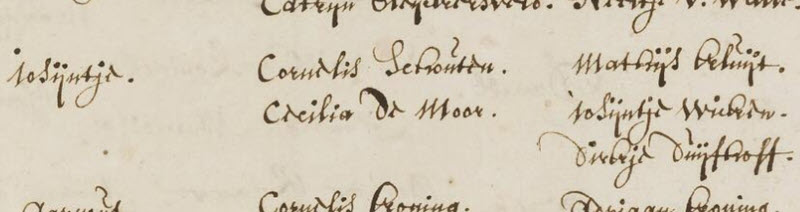 Iosijntje. Cornelis Schouten. Mathijs kruijt.
Cecilia De Moor. Iosijntje Wicken.
Dirkje Duijfhoff.
Cornelis kroning. Adriaan kroning.